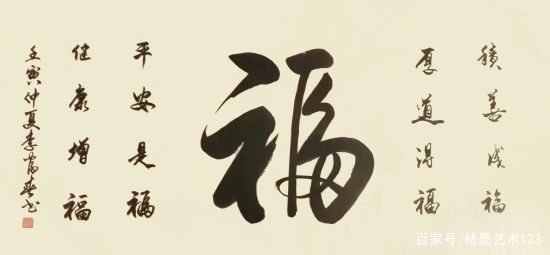 積善成福
厚道得福
福
平安是福
健康增福
壬寅仲夏李富春书
百家号/楮墨艺术123